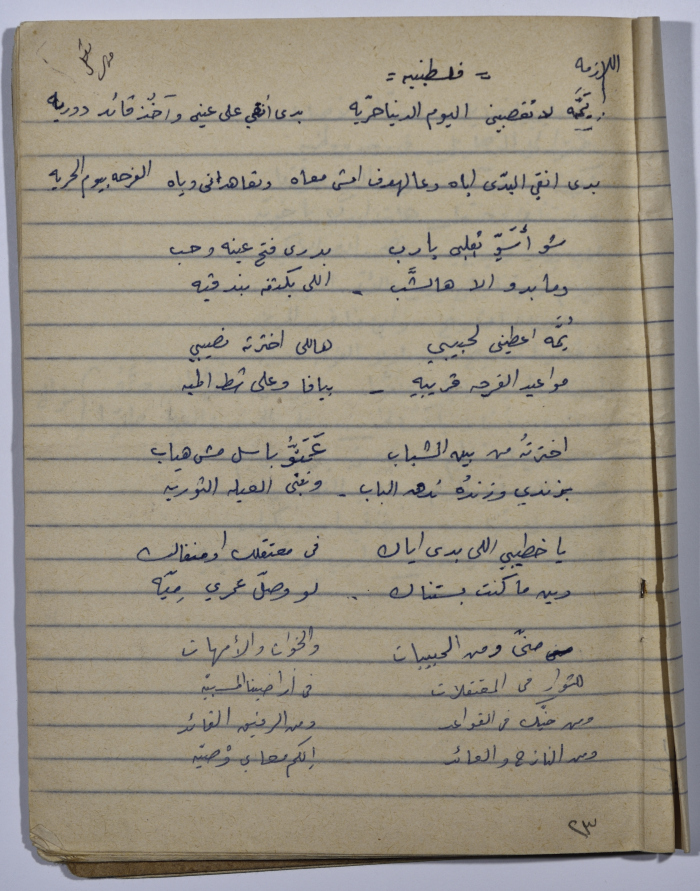 اللازمة
= فلسطينيه =
يَمَّه لا تغصبيني اليوم الدنيا حرّيه بدى أنقي على عيني وآخُذ قائد دوريه
بدى انقي البدّى اياه وعالهدف امشي معاه ونعاهد انى وياه الفرحه بيوم الحريه
شو أسَوّي بقلبى يا رب بدرى فتح عينه وحب
وما بدو الا هالشَّب - اللى بكتفه بندقيه
يُمَّه اعطيني لحبيبي هاللى اخترته نصيبي
مواعيد الفرحه قريبه - بيافا وعلى شط الميه
اخترتُه من بين الشباب باسل مش هياب
بزندي وزندُه ندهد الباب - ونبنى العيله الثوريه
يا خطيبي اللى بدى اياك في معتقلك او منفاك
وين ما كنت بستناك - لو وصلّ عمري مِيّه
منّى ومن الحبيبات والخوات والأمهات
للثوار في المعتقلات في أراضينا المسبيّه
ومن في القواعد ومن الرفيق القائد
ومن النازح والعائد إلكم معاي وْصيّه
٢٣